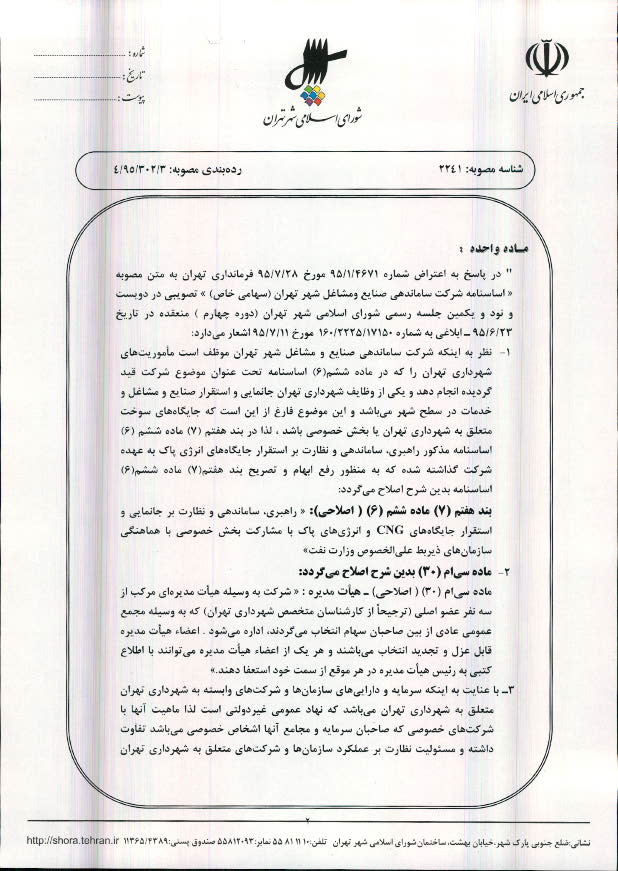 جمهوری اسلامی ایران
شورای اسلامی شهر تهران
شماره :
تاریخ :
پیوست :
شناسه مصوبه: ۲۲٤۱
رده‌بندی مصوبه: ٤/۹٥/۳۰۲/۳
مـاده واحده :
" در پاسخ به اعتراض شماره ۹٥/۱/٤٦۷۱ مورخ ۹٥/۷/۲۸ فرمانداری تهران به متن مصوبه
« اساسنامه شرکت ساماندهی صنایع ومشاغل شهر تهران (سهامی خاص) » تصویبی در دویست
و نود و یکمین جلسه رسمی شورای اسلامی شهر تهران (دوره چهارم ) منعقده در تاریخ
۹٥/٦/۲۳ ــ ابلاغی به شماره ۱٦۰/۲۲۲٥/۱۷۱٥۰ مورخ ۹٥/۷/۱۱ اشعار می‌دارد:
۱- نظر به اینکه شرکت ساماندهی صنایع و مشاغل شهر تهران موظف است مأموریت‌های
شهرداری تهران را که در ماده ششم(٦) اساسنامه تحت عنوان موضوع شرکت قید
گردیده انجام دهد و یکی از وظایف شهرداری تهران جانمایی و استقرار صنایع و مشاغل و
خدمات در سطح شهر می‌باشد و این موضوع فارغ از این است که جایگاه‌های سوخت
متعلق به شهرداری تهران یا بخش خصوصی باشد ، لذا در بند هفتم (۷) ماده ششم (٦)
اساسنامه مذکور راهبری، ساماندهی و نظارت بر استقرار جایگاه‌های انرژی پاک به عهده
شرکت گذاشته شده که به منظور رفع ابهام و تصریح بند هفتم(۷) ماده ششم(٦)
اساسنامه بدین شرح اصلاح می‌گردد:
بند هفتم (۷) ماده ششم (٦) ( اصلاحی): « راهبری، ساماندهی و نظارت بر جانمایی و
استقرار جایگاه‌های CNG و انرژی‌های پاک با مشارکت بخش خصوصی با هماهنگی
سازمان‌های ذیربط علی‌الخصوص وزارت نفت»
۲- ماده سی‌ام (۳۰) بدین شرح اصلاح می‌گردد:
ماده سی‌ام (۳۰) ( اصلاحی) ــ هیأت مدیره : « شرکت به وسیله هیأت مدیره‌ای مرکب از
سه نفر عضو اصلی (ترجیحاً از کارشناسان متخصص شهرداری تهران) که به وسیله مجمع
عمومی عادی از بین صاحبان سهام انتخاب می‌گردند، اداره می‌شود . اعضاء هیأت مدیره
قابل عزل و تجدید انتخاب می‌باشند و هر یک از اعضاء هیأت مدیره می‌توانند با اطلاع
کتبی به رئیس هیأت مدیره در هر موقع از سمت خود استعفا دهند.»
۳ــ با عنایت به اینکه سرمایه و دارایی‌های سازمان‌ها و شرکت‌های وابسته به شهرداری تهران
متعلق به شهرداری تهران می‌باشد که نهاد عمومی غیردولتی است لذا ماهیت آنها با
شرکت‌های خصوصی که صاحبان سرمایه و مجامع آنها اشخاص خصوصی می‌باشد تفاوت
داشته و مسئولیت نظارت بر عملکرد سازمان‌ها و شرکت‌های متعلق به شهرداری تهران
۲
نشانی:ضلع جنوبی پارک شهر،خیابان بهشت، ساختمان شورای اسلامی شهر تهران تلفن:۱۰ ۱۱ ۸۱ ٥٥ نمابر:٥٥۸۱۲۰۹۳ صندوق پستی:۱۱۳٦٥/٤۳۸۹ http://shora.tehran.ir